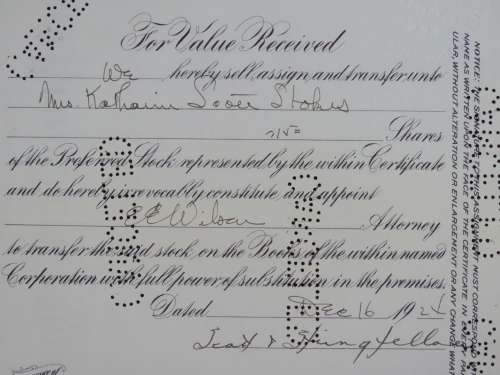 For Value Received
We hereby sell, assign and transfer unto
Mrs. Katharine Scott Stokes
Shares
of the Preferred Stock represented by the within Certificate
and do hereby irrevocably constitute and appoint
E E Wilson Attorney
to transfer the said stock on the Books of the within named
Corporation with full power of substitution in the premises.
Dated Dec 16 192
Scott & Stringfellow
NOTICE: THE SIGNATURE MUST CORRESPOND
NAME AS WRITTEN UPON THE FACE OF THE CERTIFICATE IN EVERY
ULAR, WITHOUT ALTERATION OR ENLARGEMENT OR ANY CHANGE WHAT